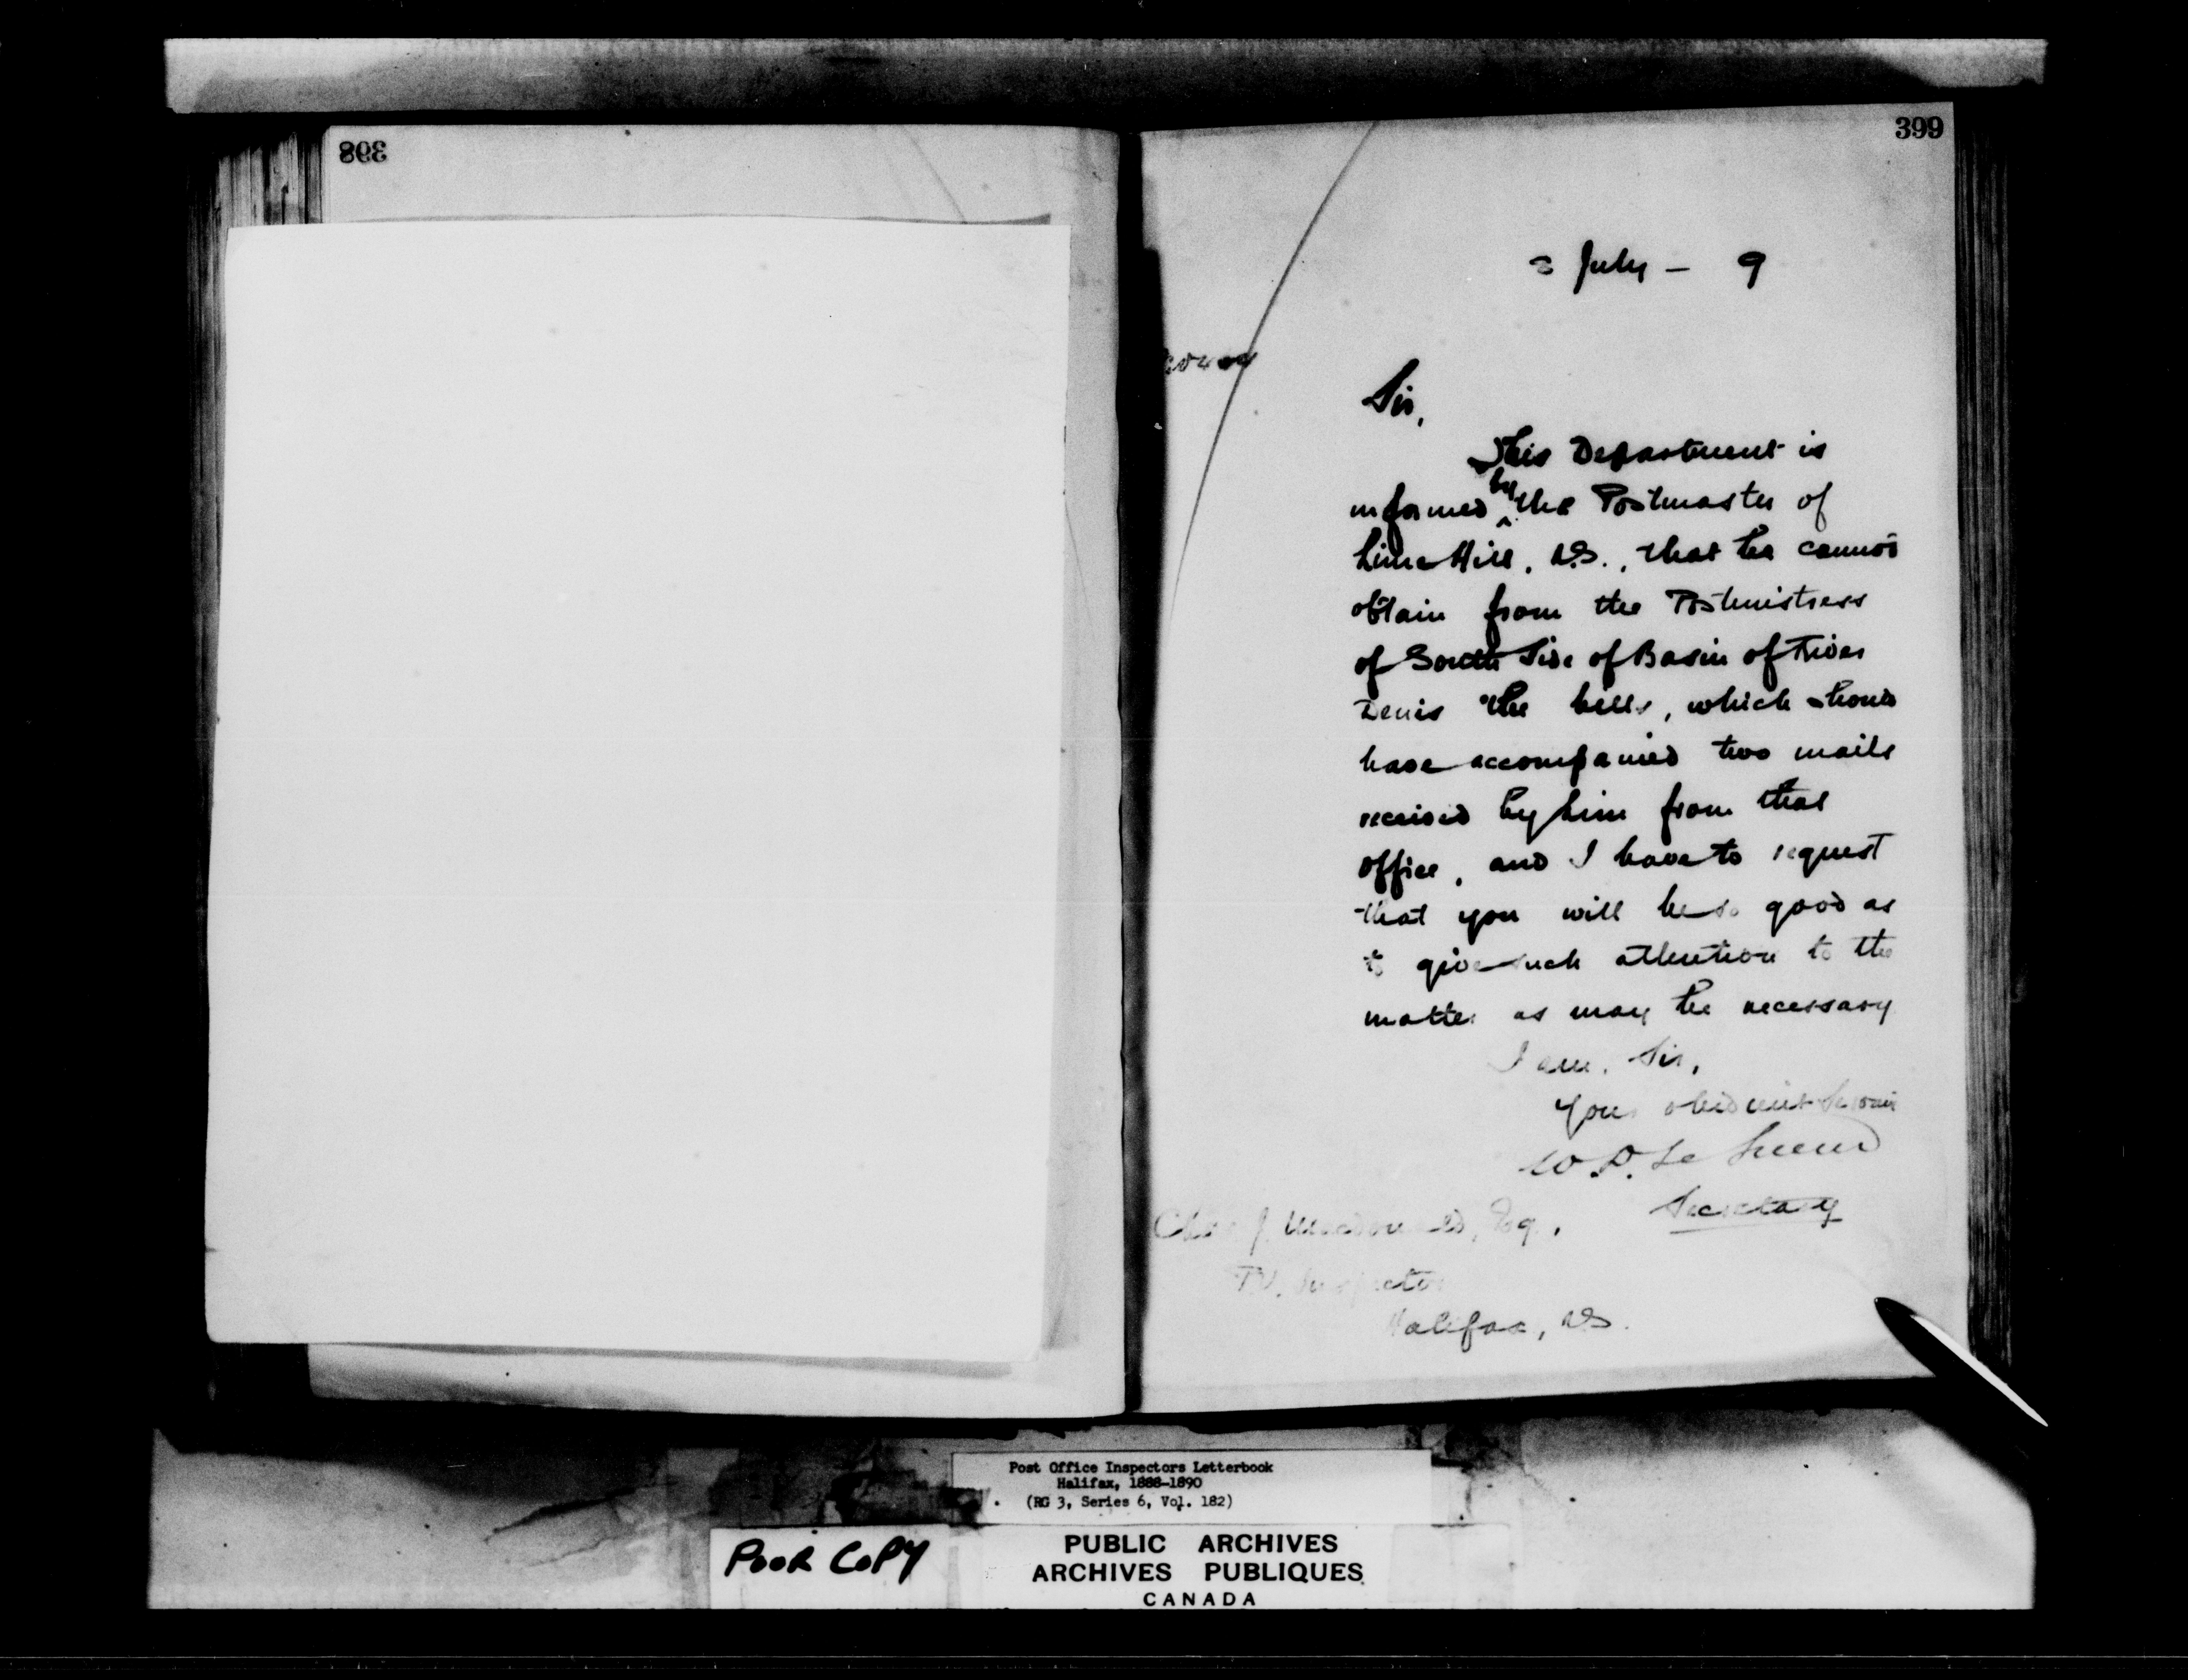 398
399
3 July - 9
Sir,
This Department is
informed by the Postmaster of
Lime Hill, N.S., that he cannot
obtain from the Postmistress
of South Side of Basin of River
Denis the bills, which should
have accompanied two mails
received by him from that
office, and I have to request
that you will be so good as
to give such attention to the
matter as may be necessary
I am, Sir,
Your obedient Servant
W. D. Le Sueur
Secretary
Chas J. Macdonald, Esq.,
P.O. Inspector
Halifax, N.S.
Post Office Inspectors Letterbook
Halifax, 1888-1890
(RG 3, Series 6, Vol. 182)
POOR COPY
PUBLIC ARCHIVES
ARCHIVES PUBLIQUES
CANADA